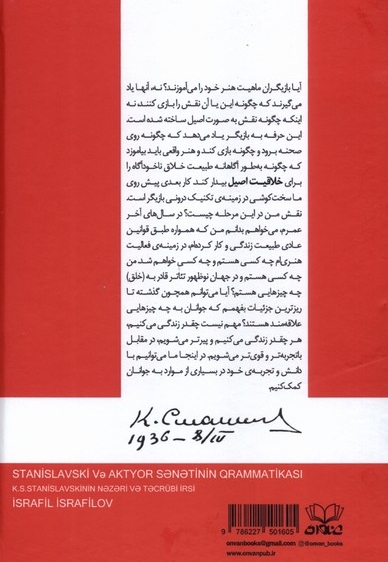 آیا بازیگران ماهیت هنر خود را می‌آموزند؟ نه، آنها یاد
می‌گیرند که چگونه این یا آن نقش را بازی کنند، نه
اینکه چگونه نقش به صورت اصیل ساخته شده است.
این حرفه به بازیگر یاد می‌دهد که چگونه روی
صحنه برود و چگونه بازی کند و هنر واقعی باید بیاموزد
که چگونه به‌طور آگاهانه طبیعت خلاق ناخودآگاه را
برای خلاقیت اصیل بیدار کند. کار بعدی پیش روی
ما سخت‌کوشی در زمینه‌ی تکنیک درونی بازیگر است.
نقش من در این مرحله چیست؟ در سال‌های آخر
عمرم، می‌خواهم بدانم من که همواره طبق قوانین
عادی طبیعت زندگی و کار کرده‌ام، در زمینه‌ی فعالیت
هنری‌ام چه کسی هستم و چه کسی خواهم شد. من
چه کسی هستم و در جهان نوظهور تئاتر قادر به (خلق)
چه چیزهایی هستم؟ آیا می‌توانم همچون گذشته تا
ریزترین جزئیات بفهمم که جوانان به چه چیزهایی
علاقه‌مند هستند؟ مهم نیست چقدر زندگی می‌کنیم،
هر چقدر زندگی می‌کنیم و پیرتر می‌شویم، در مقابل
باتجربه‌تر و قوی‌تر می‌شویم. در اینجا ما می‌توانیم با
دانش و تجربه‌ی خود در بسیاری از موارد به جوانان
کمک کنیم.
1936 – 8/IV
STANİSLAVSKİ Və AKTYOR SƏNƏTİNİN QRAMMATİKASI
K.S.STANİSLAVSKİNİN NƏZƏRİ VƏ TƏCRÜBİ İRSİ
İSRAFİL İSRAFİLOV
9 786227 501605
onvanbooks@gmail.com @onvan_books
www.onvanpub.ir
عنوان